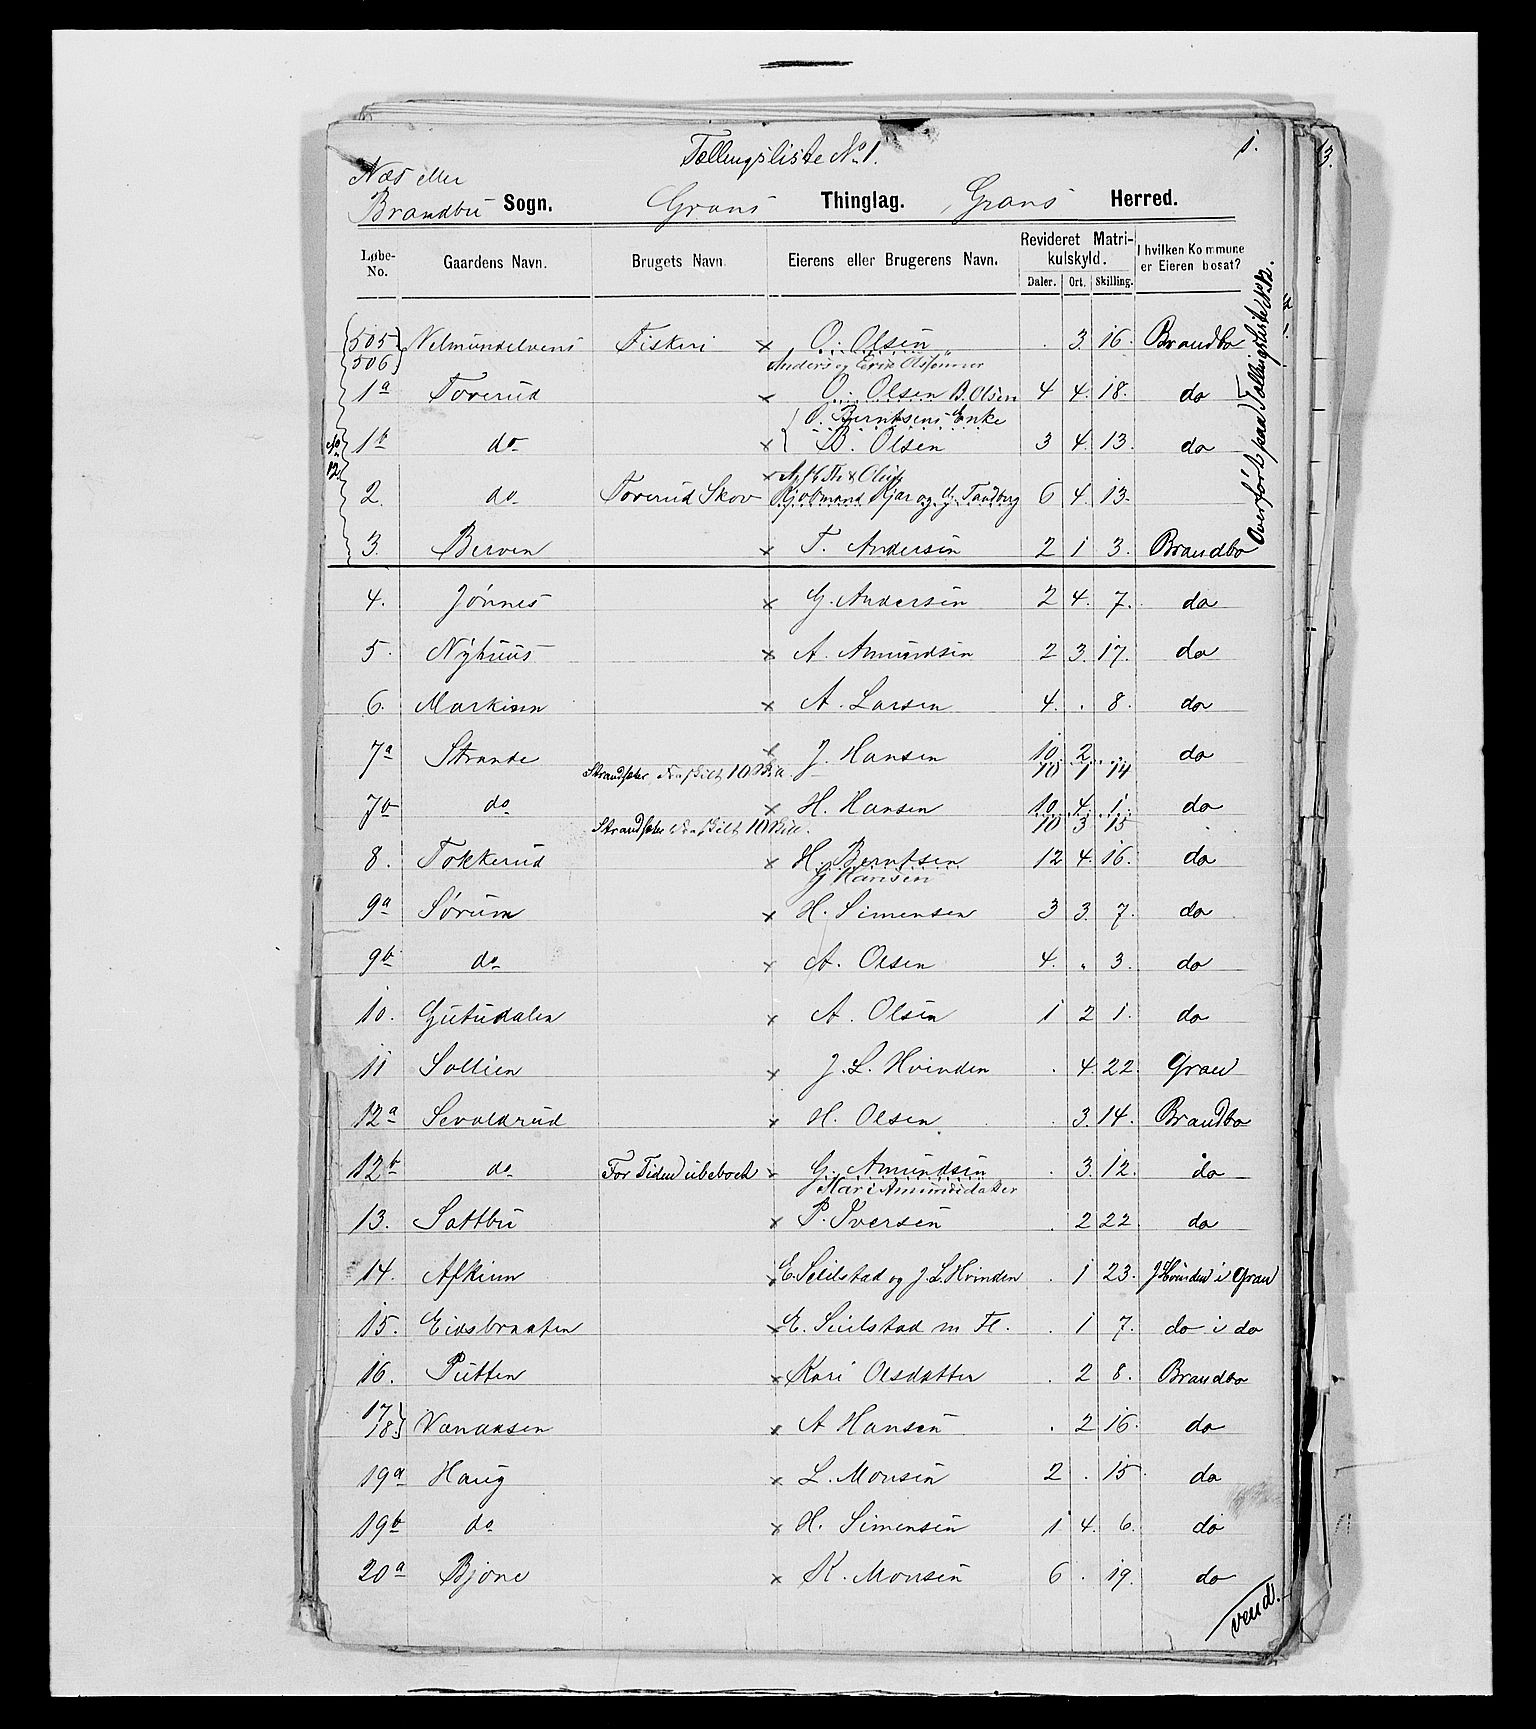 Tællingsliste No 1.
1.
3.
Næs eller
Brandbu Sogn. Grans Thinglag. Grans Herred.
Løbe-No. Gaardens Navn. Brugets Navn. Eierens eller Brugerens Navn. Revideret Matrikulskyld. Daler. Ort. Skilling. I hvilken Kommune er Eieren bosat?
505 506 Velmundelvens Fiskeri × O. Olsen . 3. 16. Brandbo
Anders og Erik Olsønner
1a Toverud × O. Olsen B. Olsen 4 4. 18. do
O. Berntsens Enke
1b do × B. Olsen 3 4. 13. do
No 12
2. do Toverud Skov × Kjøbmand Kjær og G. Tandberg 6 4. 13.
3. Berven × T. Andersen 2 1 3. Brandbo
Overført paa Tællingsliste No 12.
4. Jønnes × G. Andersen 2 4. 7. do
5. Nyhuus × A. Amundsen 2 3. 17. do
6. Markeim × A. Larsen 4. . 8. do
7a Strande × J. Hansen 10 2 . do
Strandsæter 10 1 14
7b do × H. Hansen 10 4. 1. do
Strandsæter 10 3 15
8. Tokkerud × H. Berntsen 12 4. 16. do
G Hansen
9a Sørum × H. Simensen 3 3. 7. do
9b do × A. Olsen 4. . 3. do
10. Gutudalen × A. Olsen 1 2 1. do
11 Sollien × J. L. Hvinden . 4. 22. Gran
12a Sevaldrud × H. Olsen . 3. 14. Brandbo
12b do For Tiden ubeboet × G. Amundsen . 3. 12. do
Mari Amundsdatter
13. Sattbu × P. Iversen . 2 22 do
14. Askim × E. Seilstad og J. L. Hvinden . 1 23. J Hvinden i Gran
15. Eidsbraaten × E. Seilstad m Fl. . 1 7. do i do
16. Putten × Kari Olsdatter . 2 8. Brandbo
17 18 × A Hansen . 2 16. do
19a Haug × L. Monsen 2 . 15. do
19b do × H. Simensen 1 4. 6. do
20a Bjone × K. Monsen 6 . 19. do
vend.